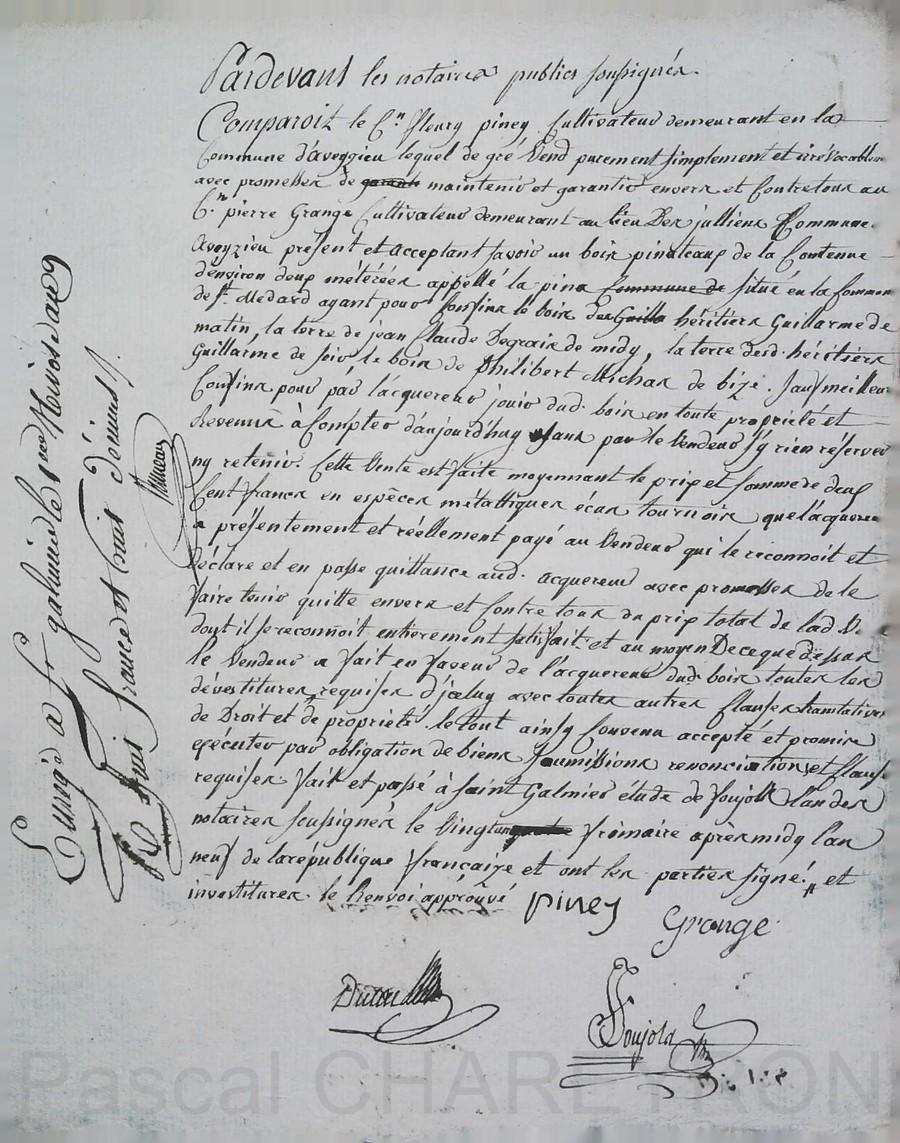 Pardevant les notaires publics soussignés.
Comparoit le C.en fleury piney Cultivateur demeurant en la
Commune d'aveyzieu lequel de gré Vend purement simplement et irrévocablem
avec promesses de maintenir et garantir envers et Contre tous au
C.en pierre Grange Cultivateur demeurant au lieu Des julliens Commune
aveyzieu présent et acceptant savoir un bois pinateaux de la Contenue
d'environ deux métérées appellé la pina situé en la Commune
de S.t Médard ayant pour Confins le bois des héritiers Guillarme de
matin, la terre de jean Claude Degrais de midy, la terre desd. héritiers
Guillarme de soir, le bois de philibert Michas de bize. sauf meilleurs
Confins pour par lacquereur jouir dud. bois en toute propriété et
Revenus à Compter d'aujourd'huy sans par le Vendeur s'y rien réserver
ny retenir. Cette Vente est faite moyennant le prix et somme de deux
Cent francs en espèces métalliques écus tournois que lacquereur
a présentement et réellement payé au Vendeur qui le reconnoit et
déclare et en passe quittance aud. acquereur avec promesses de le
faire tenir quitte envers et Contre tous du prix total de lad. V.
dont il se reconnoit entièrement satisfait. et au moyen De ce que dessus
le Vendeur a fait en faveur de l'acquereur dud. bois toutes les
dévestitures requises d'iceluy avec toutes autres Clauses translatives
de Droit et de propriété. le tout ainsy Convenu accepté et promis
exécuter par obligation de biens soumissions renonciations et Clauses
requises fait et passé à saint Galmier étude de soujols l'un des
notaires soussignés le Vingt un frimaire après midy l'an
neuf de la république française et ont les parties signé. // et
investitures. le Renvoi approuvé
piney
Grange
Soujols
Enregé a S.t galmier le
francs et huit
Pascal CHARETRON